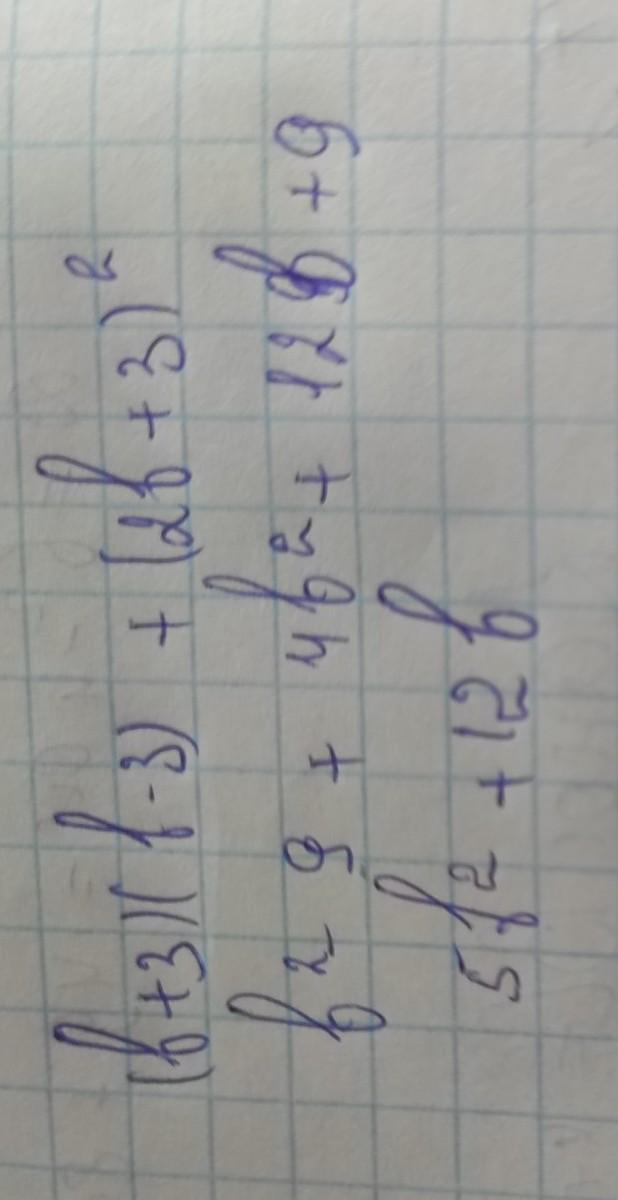 (b+3)(b-3) + (2b+3)²
b²-9 + 4b² + 12b + 9
5b² + 12b